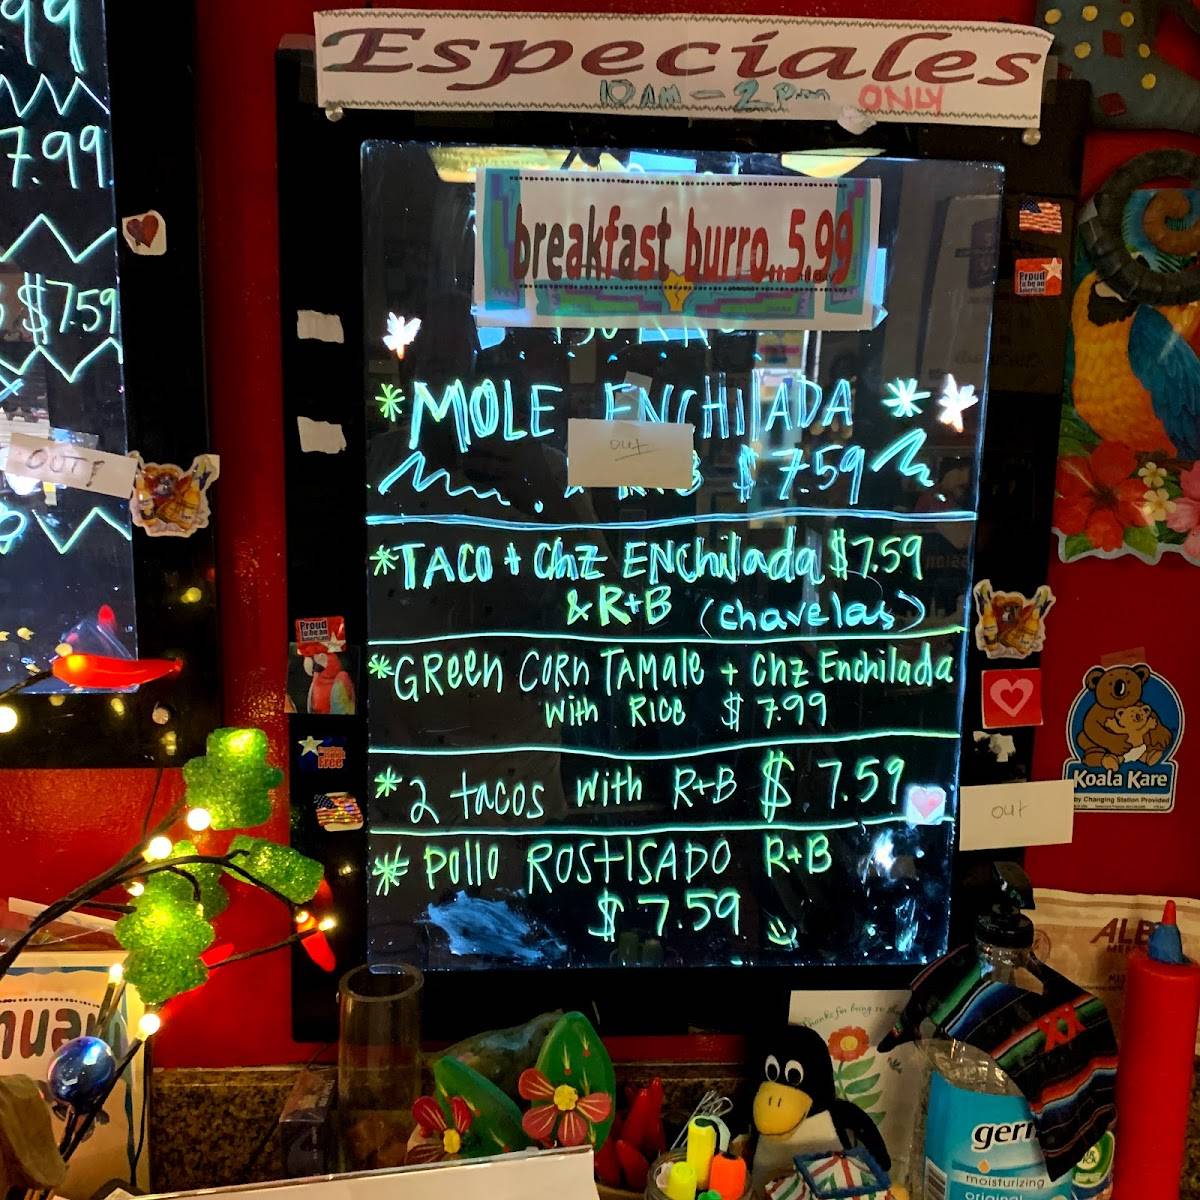 Especiales
10 AM - 2 PM ONLY
99
7.99
$7.59
OUT!
breakfast burro.. 5.99
*MOLE ENCHILADA *
out
$7.59
*TACO + Chz ENChilada $7.59
& R+B (chavelas)
*GReen CORn TAMAle + Chz Enchilada
with RICe $7.99
*2 tacos with R+B $7.59
out
* Pollo ROStISADO R+B
$7.59
Proud
to be an
American
Proud
to be an
American
Free
Koala Kare
by Changing Station Provided
ALB
Thanks for being so
XX
germ
moisturizing
original